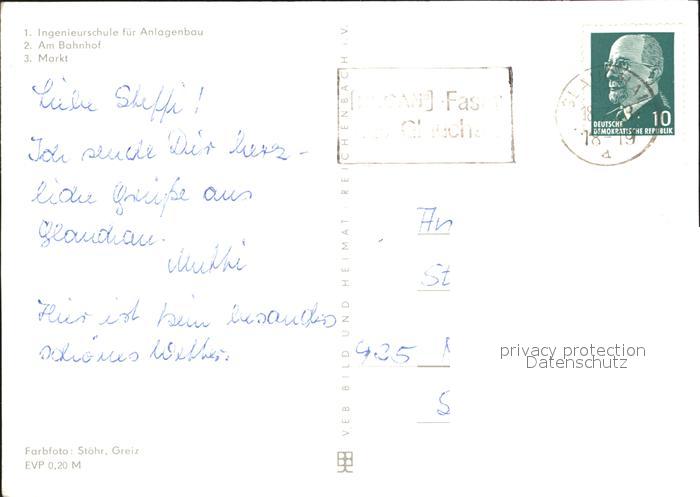 1. Ingenieurschule für Anlagenbau
2. Am Bahnhof
3. Markt
Liebe Steffi!
Ich sende Dir herz-
liche Grüße aus
Glauchau.
Mutti
Hier ist kein besonders
schönes Wetter.
Farbfoto: Stöhr, Greiz
EVP 0,20 M
VEB BILD UND HEIMAT REICHENBACH i.V.
-Faser
DEUTSCHE
DEMOKRATISCHE REPUBLIK
10
18-19
a
An
St
925
S
privacy protection
Datenschutz